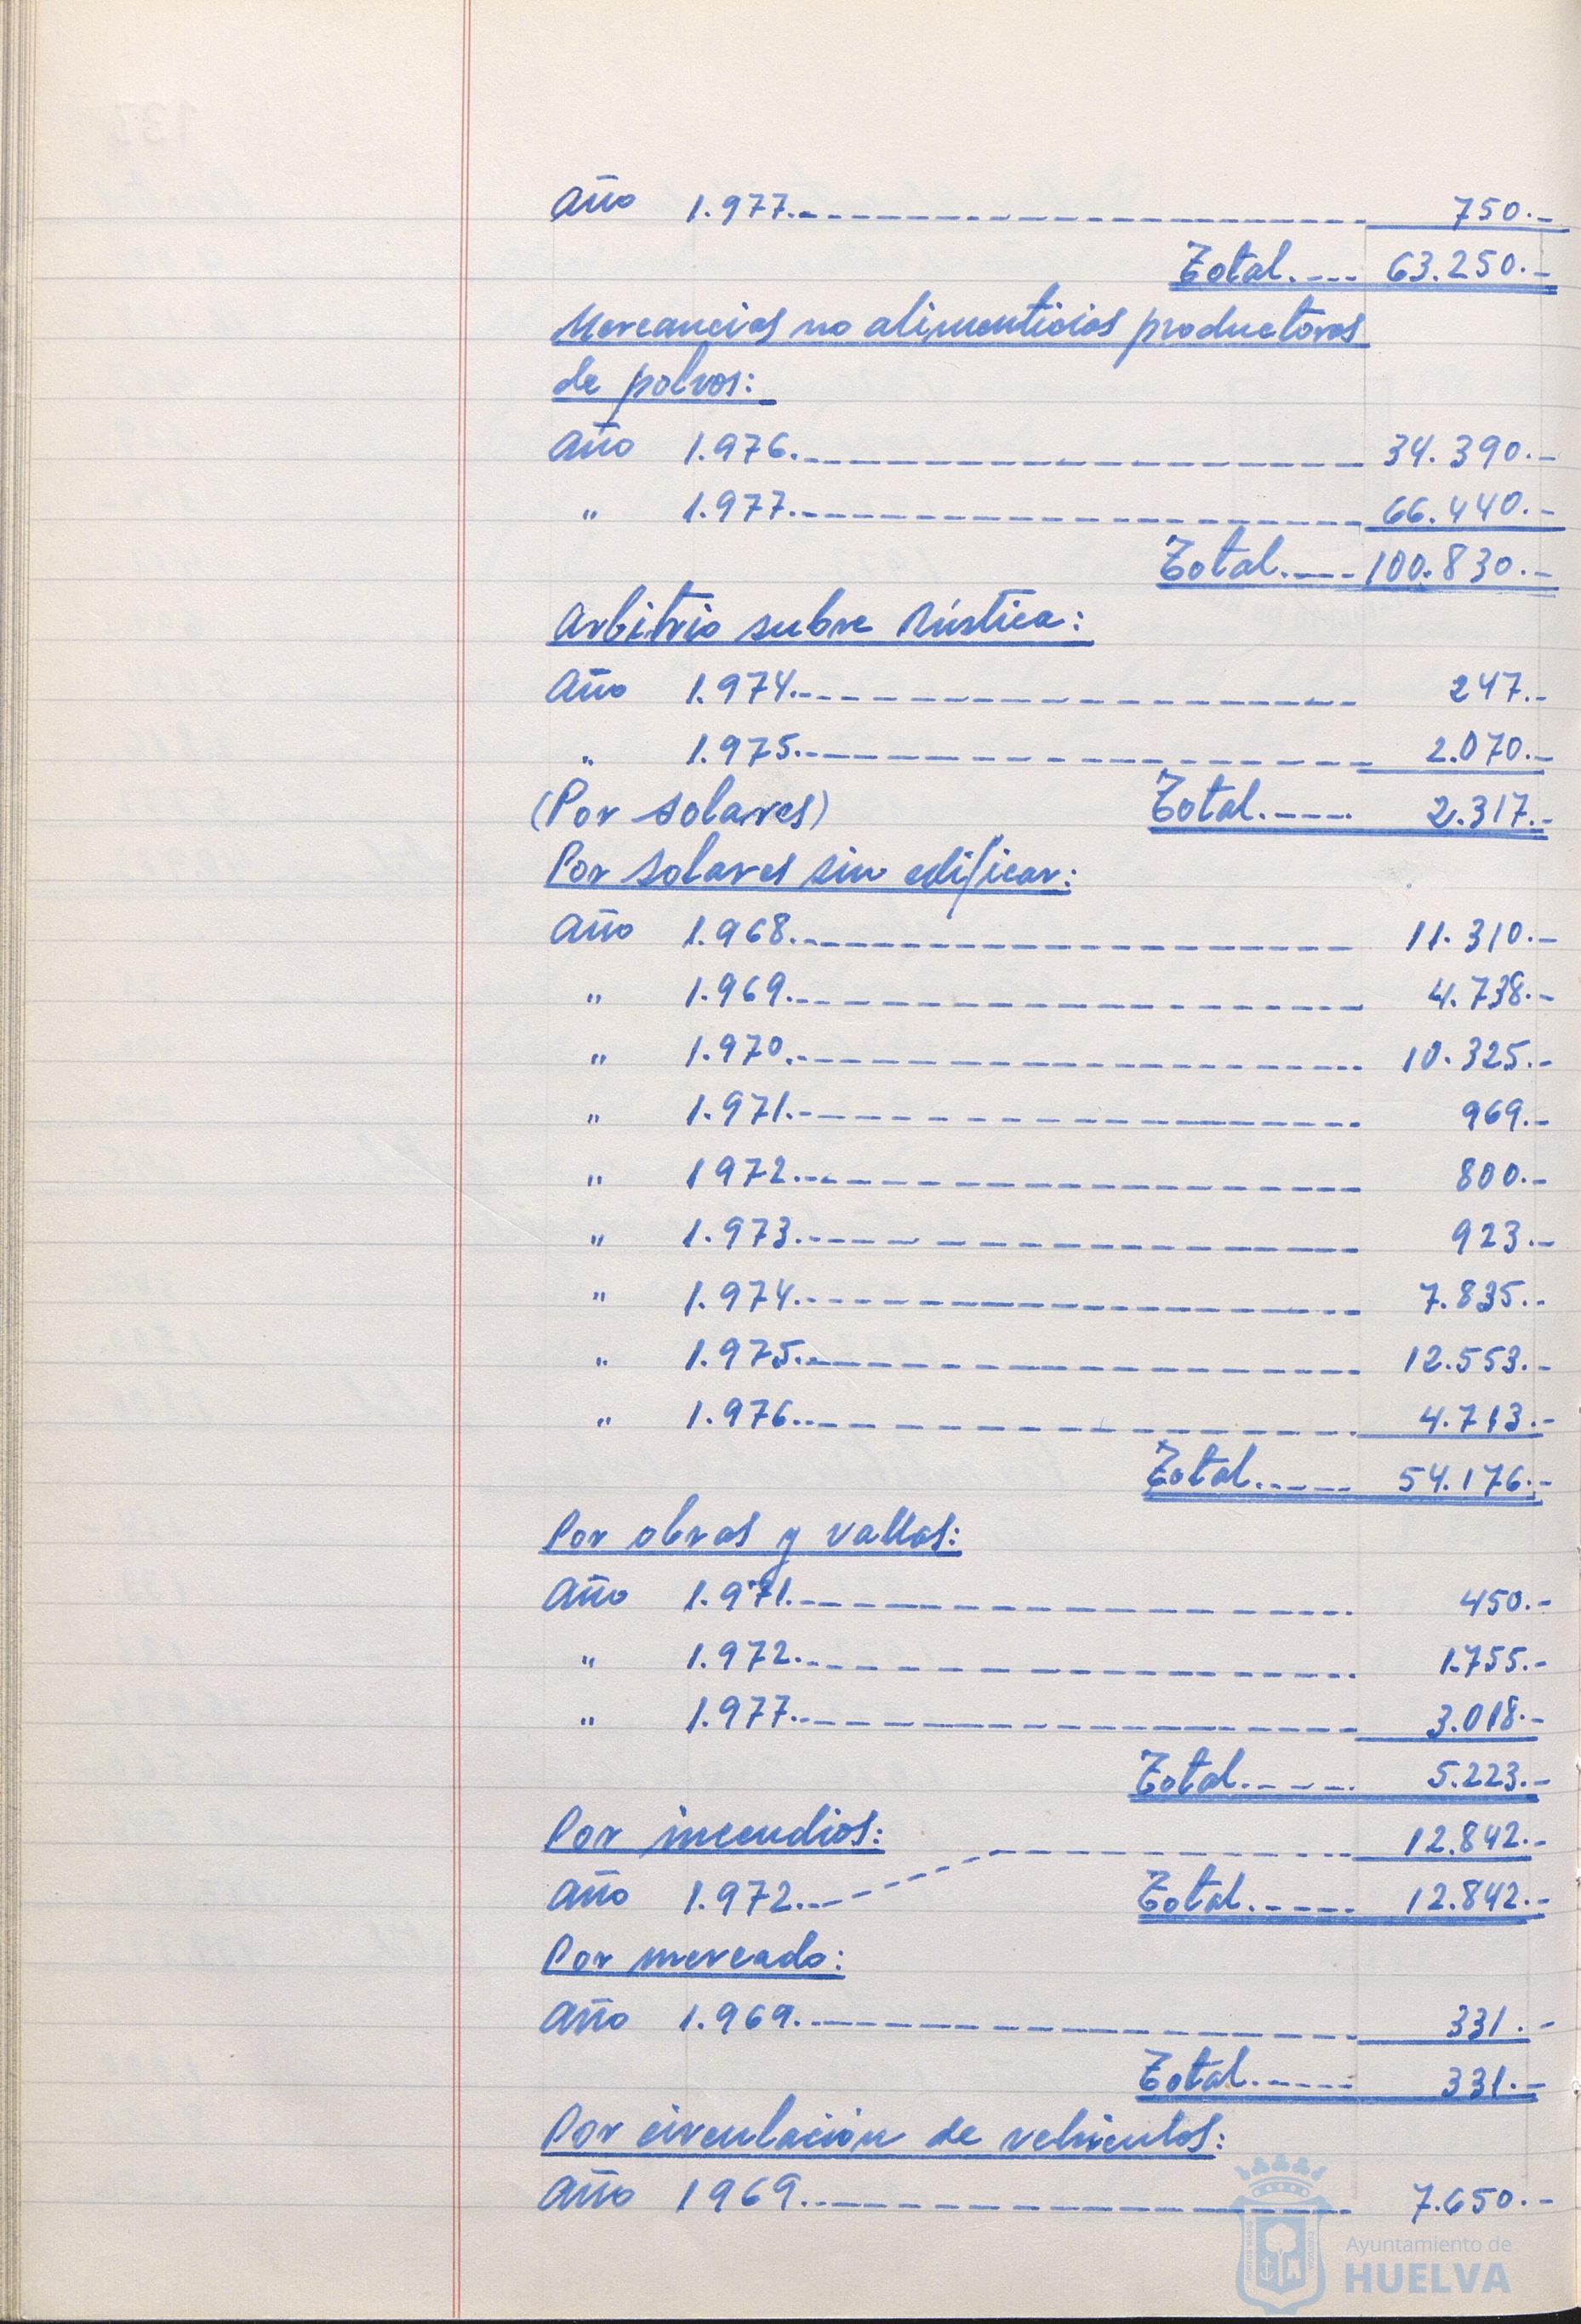 Año 1.977.- 750.-
Total.--- 63.250.-
Mercancias no alimenticias productoras
de polvos:
Año 1.976.- 34.390.-
" 1.977.- 66.440.-
Total.--- 100.830.-
Arbitrio sobre Rústica:
Año 1.974.- 247.-
" 1.975.- 2.070.-
(Por solares) Total.---- 2.317.-
Por solares sin edificar:
Año 1.968.- 11.310.-
" 1.969.- 4.738.-
" 1.970.- 10.325.-
" 1.971.- 969.-
" 1972.- 800.-
" 1.973.- 923.-
" 1.974.- 7.835.-
" 1.975.- 12.553.-
" 1.976.- 4.713.-
Total.---- 54.176.-
Por obras y vallas:
Año 1.971.- 450.-
" 1.972.- 1.755.-
" 1.977.- 3.018.-
Total.---- 5.223.-
Por incendios: 12.842.-
Año 1.972.- Total.---- 12.842.-
Por mercado:
Año 1.969.- 331.-
Total.---- 331.-
Por circulación de vehiculos:
Año 1969.- 7.650.-
Ayuntamiento de
HUELVA